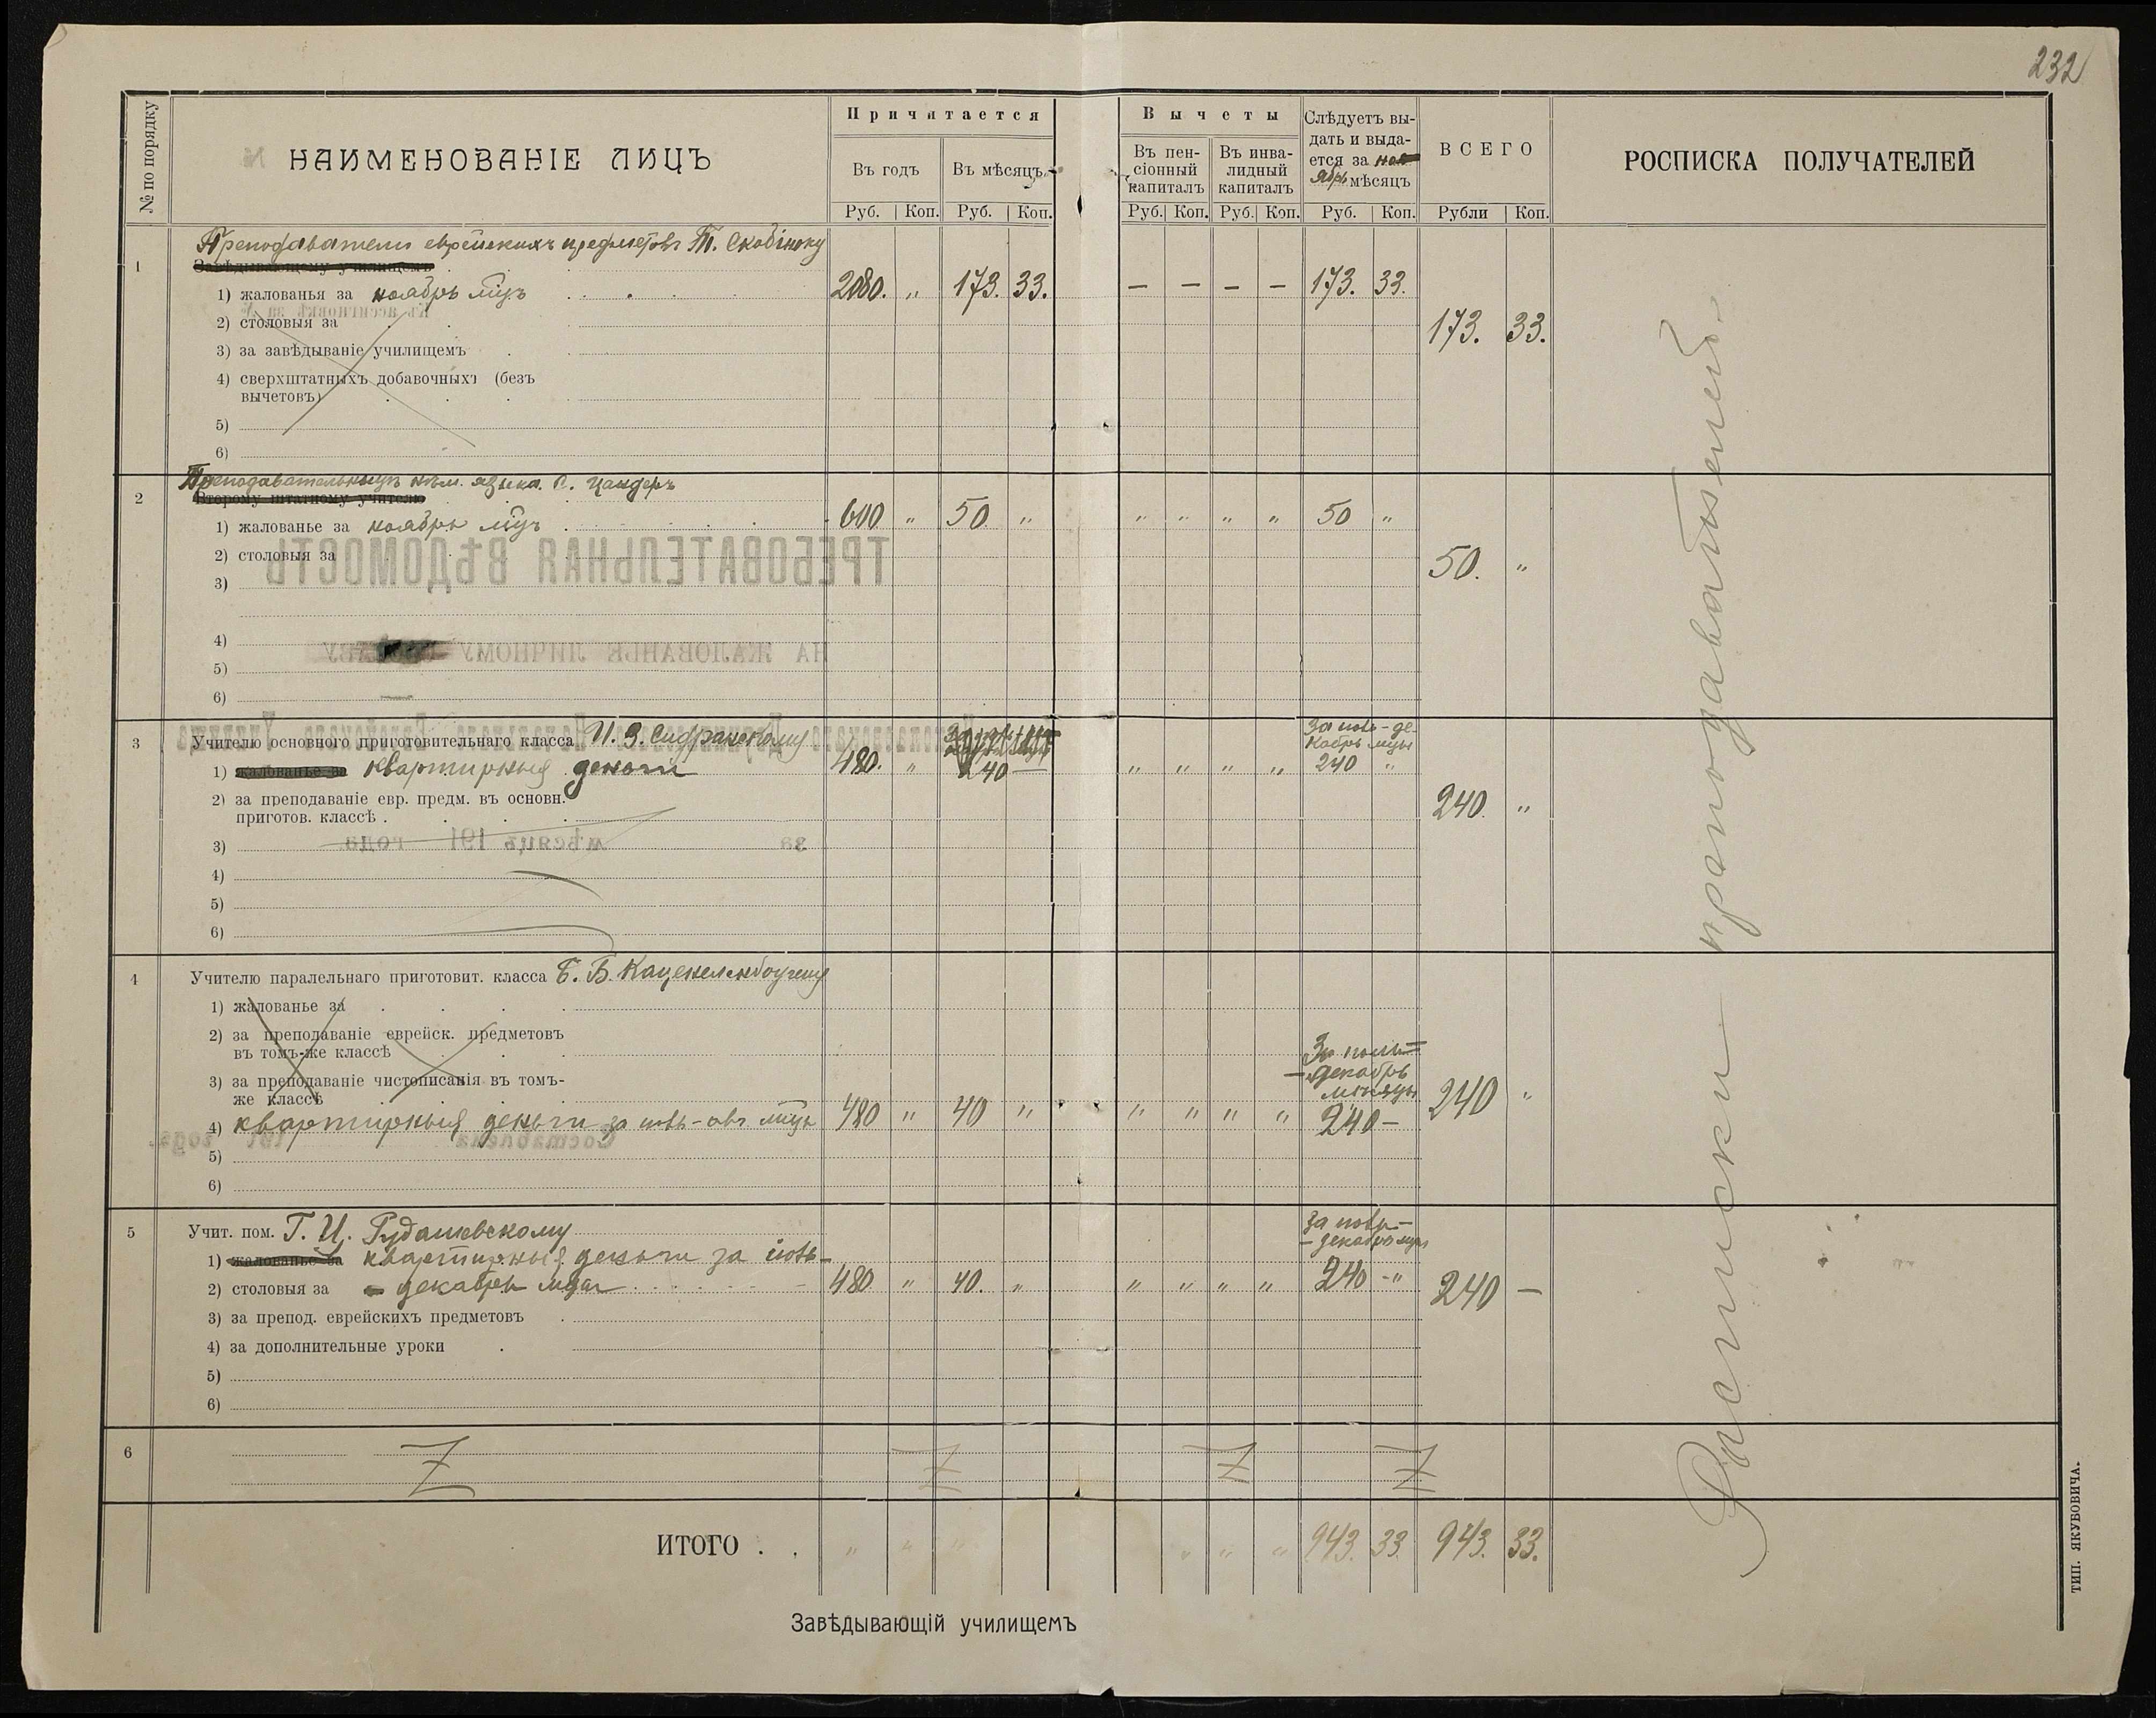 232
№ по порядку
НАИМЕНОВАНІЕ ЛИЦЪ
Причитается
Въ годъ
Въ мѣсяцъ
Руб. Коп. Руб. Коп.
Вычеты
Въ пен-
сіонный
капиталъ
Въ инва-
лидный
капиталъ
Руб. Коп. Руб. Коп.
Слѣдуетъ вы-
дать и выда-
ется за ноя
ябрь мѣсяцъ
Руб. Коп.
ВСЕГО
Рубли Коп.
РОСПИСКА ПОЛУЧАТЕЛЕЙ
1
Преподавателю еврейскихъ предметовъ Т. Скобіноку
Завѣдывающему училищемъ
1) жалованья за ноябрь мцъ 2080. " 173. 33. — — — — 173. 33.
2) столовыя за
173. 33.
3) за завѣдываніе училищемъ
4) сверхштатныхъ добавочныхъ (безъ
вычетовъ)
5)
6)
2
Преподавательницѣ нѣм. языка С. Цандеръ
Второму штатному учителю
1) жалованье за ноябрь мцъ 600 " 50 " " " " " 50 "
2) столовыя за
50. "
3)
4)
5)
6)
ТРЕБОВАТЕЛЬНАЯ ВѢДОМОСТЬ
НА ЖАЛОВАНЬЕ ЛИЧНОМУ
3
Учителю основного приготовительнаго класса
За іюль-де-
кабрь мцы
1) жалованье за квартирныя деньги 480. " 240 — " " " " 240 "
2) за преподаваніе евр. предм. въ основн.
приготов. классѣ
240. "
3)
за мѣсяцъ 191 года
4)
5)
6)
4
Учителю паралельнаго приготовит. класса Б. Б. Каценеленбогену
1) жалованье за
2) за преподаваніе еврейск. предметовъ
въ томъ-же классѣ
3) за преподаваніе чистописанія въ томъ-
же классѣ
За іюль-
-декабрь
мѣсяцы
4) квартирныя деньги за 480 " 40 " " " " " 240 — 240 "
Составлена 191 года.
5)
6)
5
Учит. пом. Г. И. Рудашевскому
За іюль-
- декабрь мцы
1) жалованье за квартирныя деньги за іюль-
2) столовыя за - декабрь мцы 480. " 40. " " " " " 240 - " 240 —
3) за препод. еврейскихъ предметовъ
4) за дополнительные уроки
5)
6)
6
Z Z Z Z
ИТОГО . . " " " " " " 943. 33 943. 33.
Расписки преподавателей
Завѣдывающій училищемъ
ТИП. ЯКУБОВИЧА.